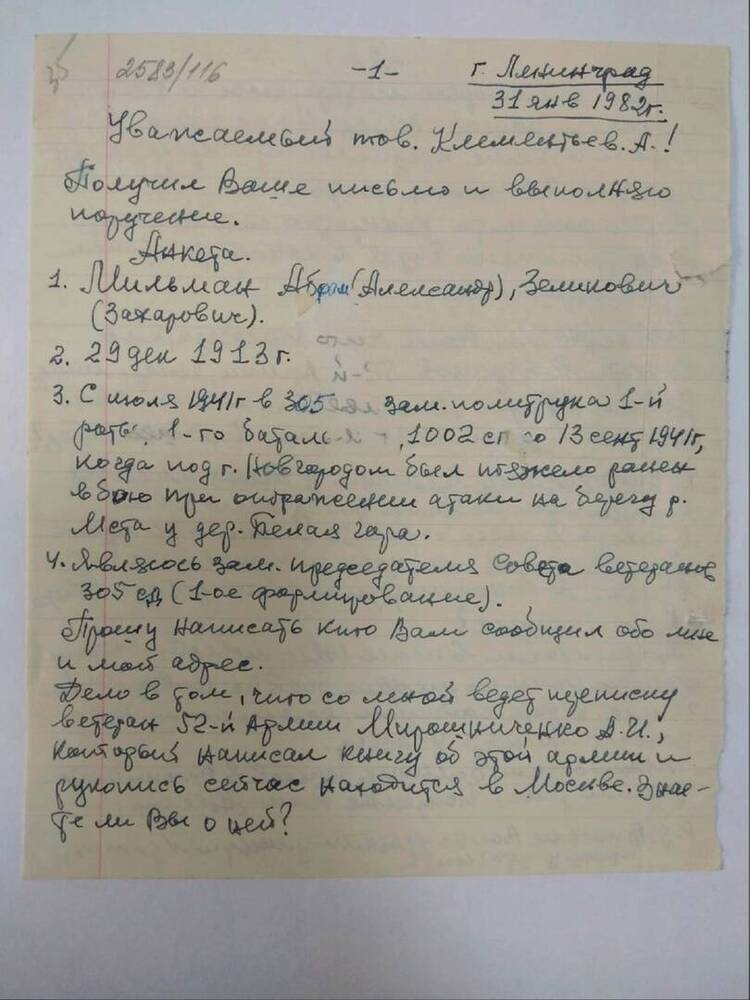 2583/116
-1-
г. Ленинград
31 янв 1982г.
Уважаемый тов. Клементьев.А.!
Получил Ваше письмо и выполняю
поручение.
Анкета.
1. Мильман Абрам (Александр), Зеликович
(Захарович).
2. 29 дек 1913 г.
3. С июля 1941г в 305 зам. политрука 1-й
роты, 1-го баталь , 1002 сп до 13 сент 1941г,
когда под г. Новгородом был тяжело ранен
в бою при отражении атаки на берегу р.
Мста у дер. Белая гора.
4. Являюсь зам. председателя Совета ветеранов
305 сд (1-ое формирование).
Прошу написать кто Вам сообщил обо мне
и мой адрес.
Дело в том, что со мной ведет переписку
ветеран 52-й Армии Мирошниченко А.И.,
который написал книгу об этой армии и
рукопись сейчас находится в Москве. Знае-
те ли Вы о ней?